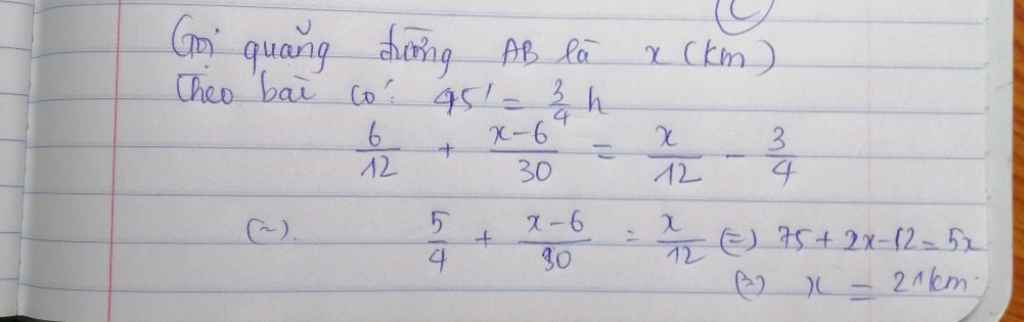 C
Gọi quãng đường AB là x (km)
Theo bài có: 45' = 3/4 h
6/12 + x-6/30 = x/12 - 3/4
(=). 5/4 + x-6/30 = x/12 (=) 75 + 2x - 12 = 5x
(=) x = 21km.